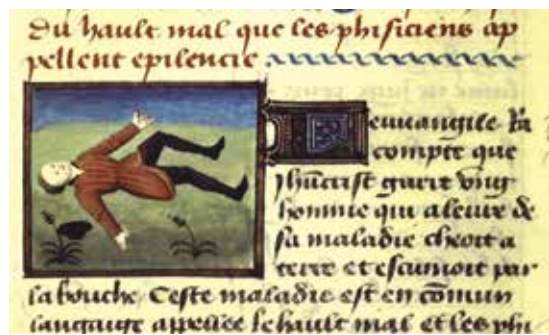 Du hault mal que les phisiciens ap
pellent epilencie
euuangile
compte que
jhūcrist garit vng
homme qui a leure de
sa maladie cheoit a
terre et escumoit par
la bouche. Ceste maladie est en cōmun
languaige appellee le hault mal et les phi